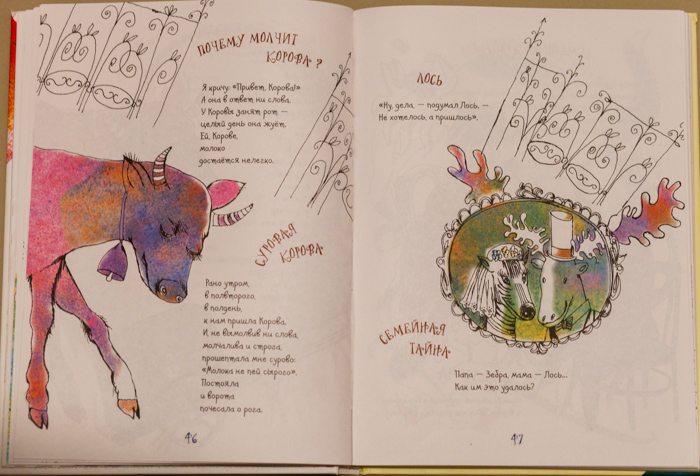 ПОЧЕМУ МОЛЧИТ
КОРОВА?
Я кричу: «Привет, Корова!»
А она в ответ ни слова.
У Коровы занят рот —
целый день она жуёт.
Ей, Корове,
молоко
достаётся нелегко.
СУРОВАЯ
КОРОВА
Рано утром,
в полвторого,
в полдень,
к нам пришла Корова.
И не вымолвив ни слова,
молчалива и строга,
прошептала мне сурово:
«Молока не пей сырого».
Постояла
и ворота
почесала о рога.
46
ЛОСЬ
«Ну, дела, — подумал Лось, —
Не хотелось, а пришлось».
СЕМЕЙНАЯ
ТАЙНА
Папа — Зебра, мама — Лось...
Как им это удалось?
47